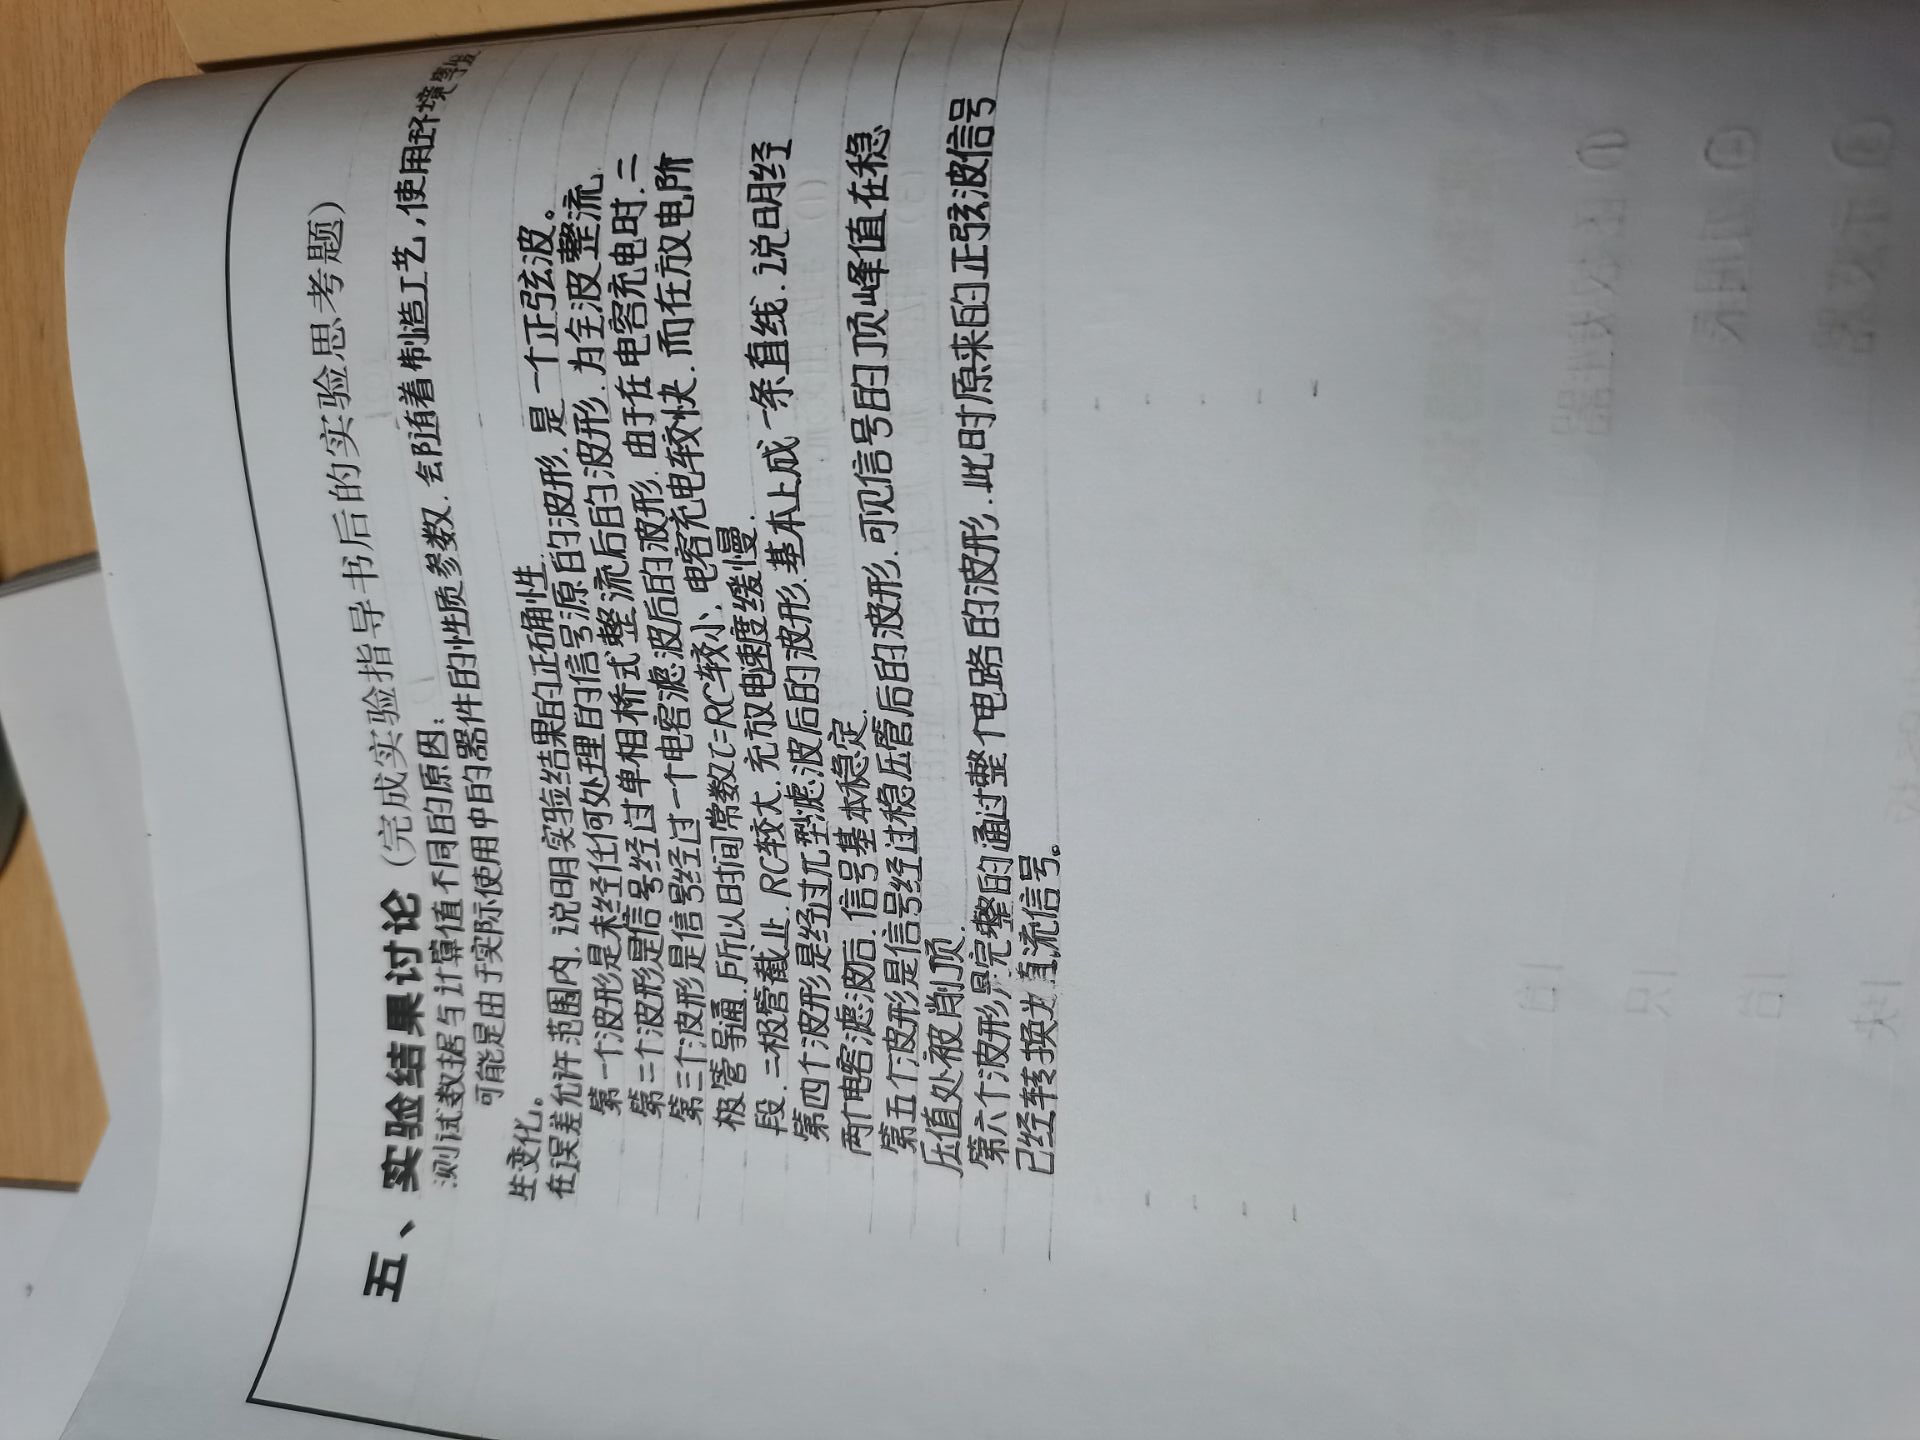 五、实验结果讨论(完成实验指导书后的实验思考题)
测试数据与计算值不同的原因:
可能是由于实际使用中的器件的性质参数.会随着制造工艺,使用环境等发
生变化。
在误差允许范围内.说明实验结果的正确性.
第一个波形是未经任何处理的信号源的波形.是一个正弦波。
第二个波形是信号经过单相桥式整流后的波形.为全波整流.
第三个波形是信号经过一个电容滤波后的波形.由于在电容充电时.二
极管导通.所以时间常数τ=RC较小.电容充电较快.而在放电阶
段.二极管截止.RC较大.充放电速度缓慢.
第四个波形是经过π型滤波后的波形.基本上成一条直线.说明经
两个电容滤波后.信号基本稳定.
第五个波形是信号经过稳压管后的波形.可见信号的顶峰值在稳
压值处被削顶.
第六个波形是完整的通过整个电路的波形.此时原来的正弦波信号
已经转换为直流信号。